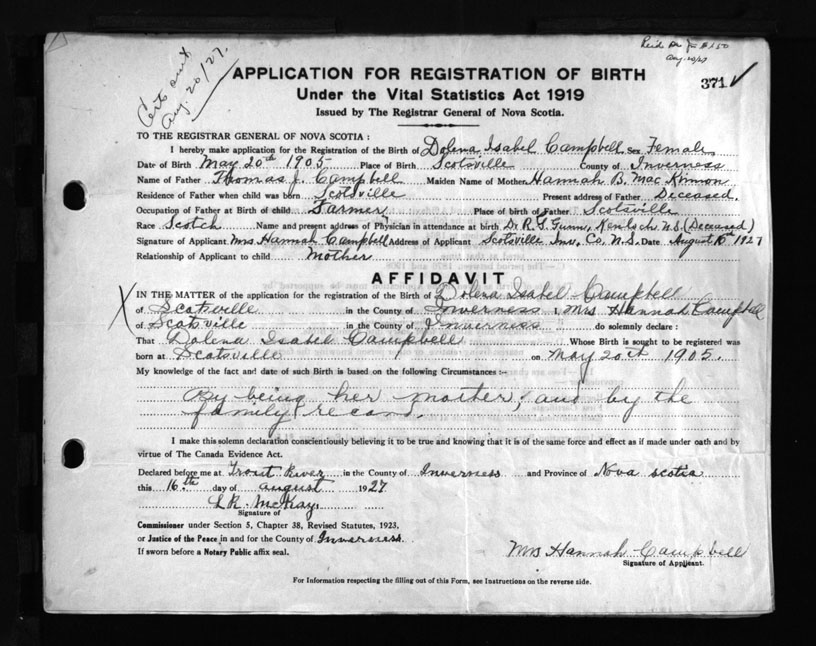 Certs out
Aug. 20/27.
Aug. 20/27
371 ✓
APPLICATION FOR REGISTRATION OF BIRTH
Under the Vital Statistics Act 1919
Issued by The Registrar General of Nova Scotia.
TO THE REGISTRAR GENERAL OF NOVA SCOTIA :
I hereby make application for the Registration of the Birth of Dolena Isabel Campbell Sex Female
Date of Birth May 20th 1905 Place of Birth Scotsville County of Inverness
Name of Father Thomas J. Campbell Maiden Name of Mother Hannah B. MacKinnon
Residence of Father when child was born Scotsville Present address of Father Deceased.
Occupation of Father at Birth of child Farmer Place of birth of Father Scotsville
Race Scotch Name and present address of Physician in attendance at birth Dr. R. G. Gunn, Kenloch N.S. (Deceased)
Signature of Applicant Mrs Hannah Campbell Address of Applicant Scotsville Inv. Co. N.S. Date August 1927
Relationship of Applicant to child Mother
AFFIDAVIT
IN THE MATTER of the application for the registration of the Birth of Dolena Isabel Campbell
of Scotsville in the County of Inverness I, Mrs Hannah Campbell
of Scotsville in the County of Inverness do solemnly declare :
That Dolena Isabel Campbell Whose Birth is sought to be registered was
born at Scotsville on May 20th 1905.
My knowledge of the fact and date of such Birth is based on the following Circumstances :—
By being her mother, and by the
family record.
I make this solemn declaration conscientiously believing it to be true and knowing that it is of the same force and effect as if made under oath and by
virtue of The Canada Evidence Act.
Declared before me at Trout River in the County of Inverness and Province of Nova Scotia
this 16th day of August 1927
McKay.
Signature of
Commissioner under Section 5, Chapter 38, Revised Statutes, 1923,
or Justice of the Peace in and for the County of Inverness.
If sworn before a Notary Public affix seal.
Mrs Hannah Campbell
Signature of Applicant.
For Information respecting the filling out of this Form, see Instructions on the reverse side.